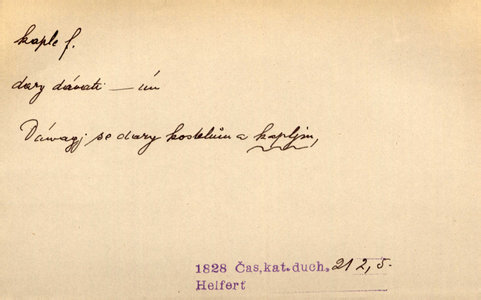 kaple f.
dary dávati — ím
Dáwagj se dary kostelům a kapljm,
1828 Čas.kat.duch. 21 2, 5.
Helfert